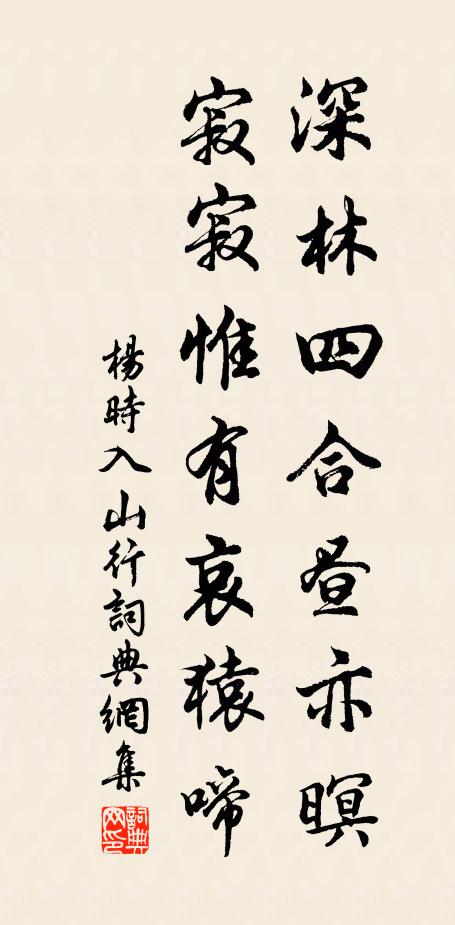 深林四合昼亦暝
寂寂惟有哀猿啼
楊時入山行詞典網集
詞典网印